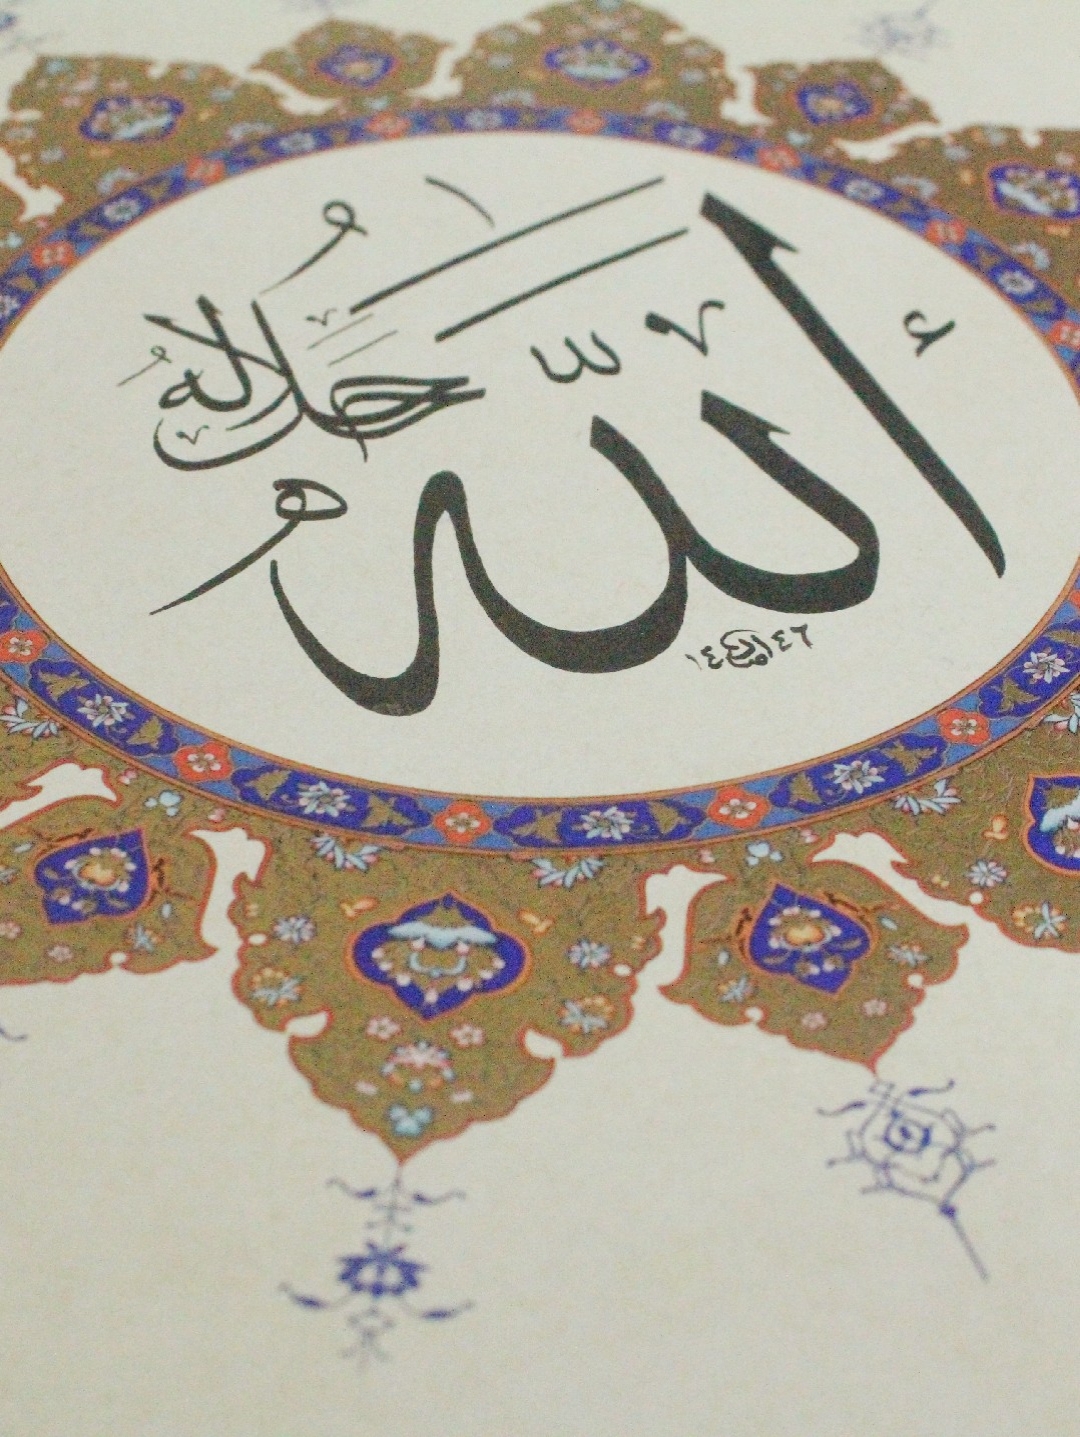 اللّٰهُ
جَلَّ جَلَالُهُ
١٤٤٦